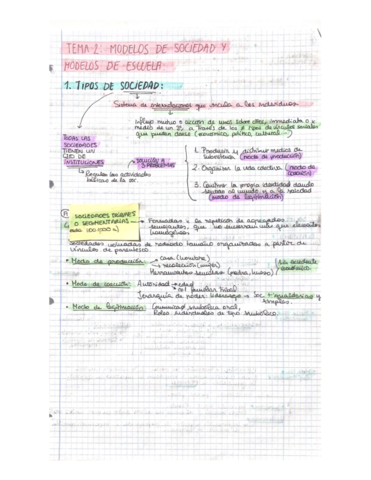 TEMA 2: MODELOS DE SOCIEDAD Y
MODELOS DE ESCUELA.
1. TIPOS DE SOCIEDAD:
Sistema de interrelaciones que vincula a los individuos.
Influjo mutuo = acción de unos sobre otros, inmediata o x
medio de un 3º a través de los ≠ tipos de vínculos sociales
que pueden darse (económico, político, cultural...)
TODAS LAS
SOCIEDADES
TIENEN UN
DE
INSTITUCIONES
SOLUCIÓN A
3 PROBLEMAS
1. Producir y distribuir medios de
subsistencia (modo de producción)
2. Organizar la vida colectiva (modo de
coerción)
3. Construir la propia identidad dando
sentido al mundo y a la sociedad
(modo de legitimación)
Regulan las actividades
básicas de la soc.
A
SOCIEDADES TRIBALES
O SEGMENTARIAS
Formadas x la repetición de agregados
semejantes, que no encierran más que elementos
homogéneos.
Sociedades volumadas de tamaño organizadas a partir de
vínculos de parentesco.
• Modo de producción:
caza (hombre)
recolección (mujer)
Herramientas sencillas (piedra, hueso)
económico
• Modo de coerción: Autoridad
edad
rol familiar tribal
Jerarquía de poder: liderazgo → Soc. + igualitarias y
simples.
• Modo de legitimación: Comunidad simbólica oral,
Roles individuales de tipo simbólico.